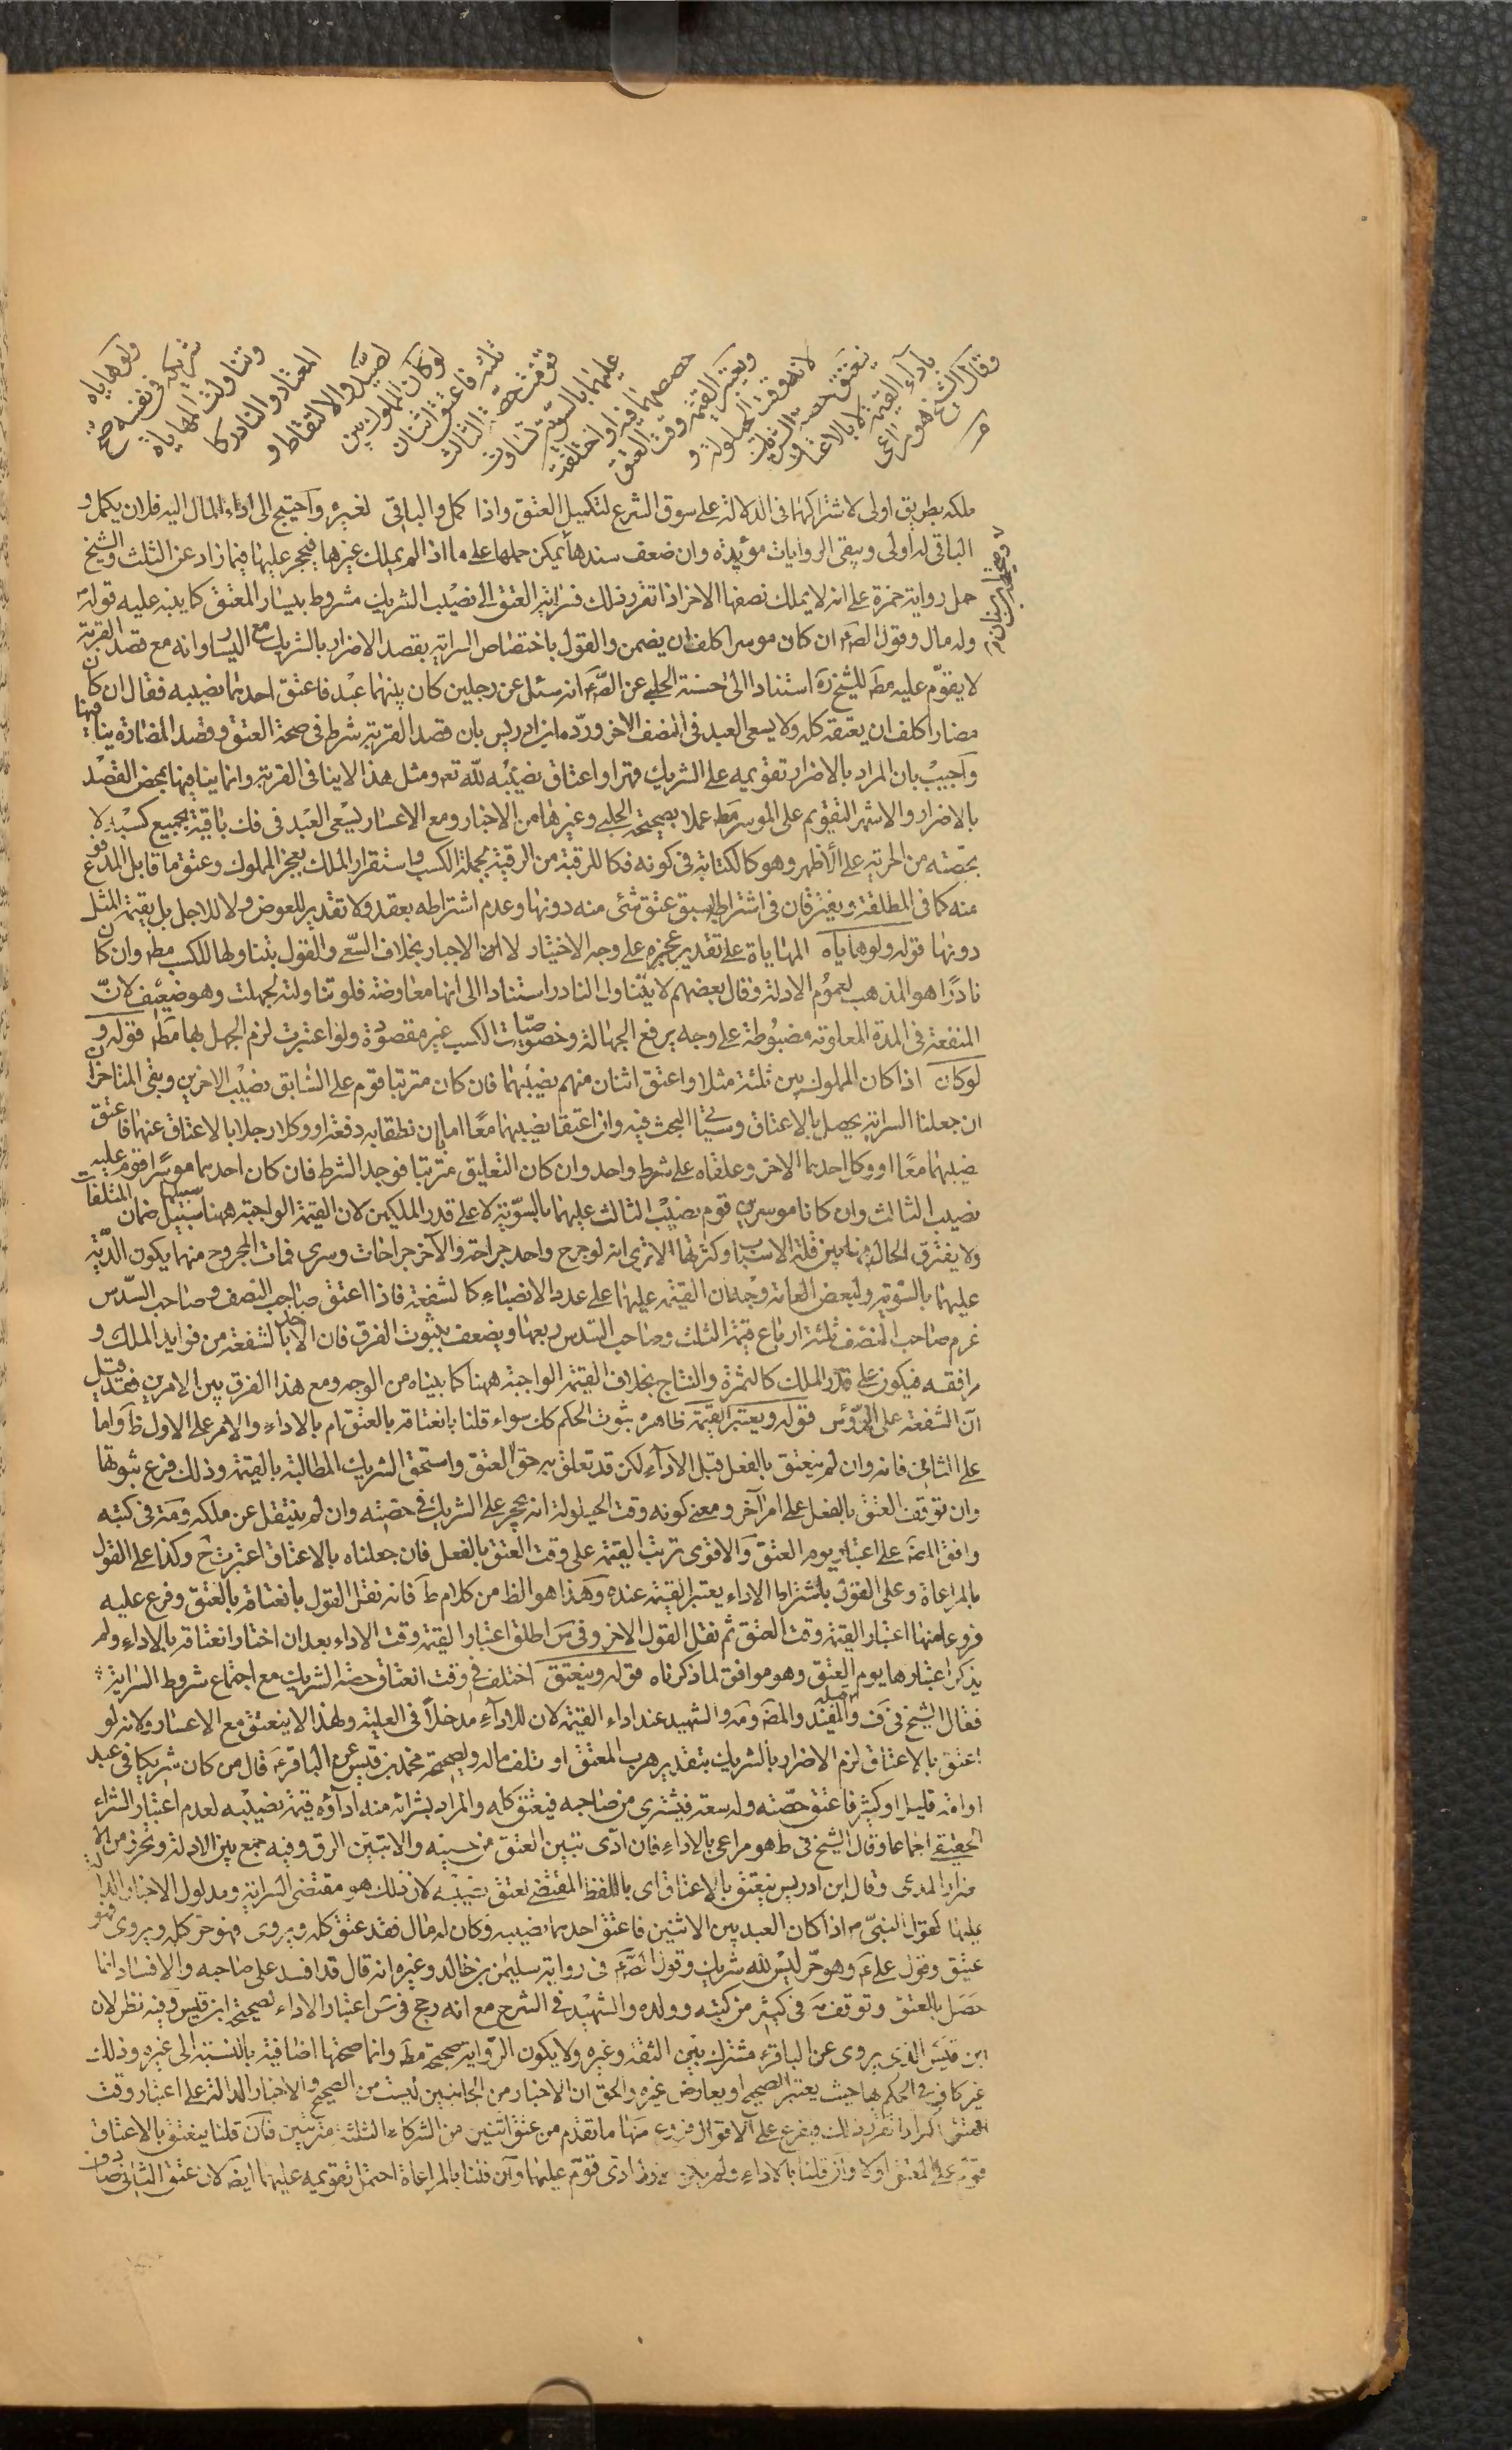 ولو هاياه
شريكه في نفسه صح
وتناولت المهاياة
المعتاد والنادر كا
لصيد والالتقاط و
لو كان المملوك بين
ثلثة فاعتق اثنان
قومت حصة الثالث
عليهما بالسوية تساوت
حصصهما فيه او اختلفت
ويعتبر القيمة وقت العتق
لانه وقت الحيلولة و
ينعتق حصة الشريك
باداء القيمة لا بالاعتاق
وقال الشيخ هو مراعى
ملكه بطريق اولى لاشتراكهما فى الدلالة على سوق الشرع لتكميل العتق واذا كمل والباقى لغيره واحتيج الى اداء المال اليه فلان يكمل و
الباقى له اولى ويبقى الروايات مؤيدة وان ضعف سندها يمكن حملها على ما اذا لم يملك غيرها فيحجر عليها فيما زاد عن الثلث والشيخ
حمل رواية حمزة على انه لا يملك نصفها الاخر اذا تقرر ذلك فسراية العتق الى نصيب الشريك مشروط بيسار المعتق كما ينبه عليه قوله
وله مال وقول الصم ان كان موسرا كلف ان يضمن والقول باختصاص السراية بقصد الاضرار بالشريك مع اليسار وانه مع قصد القربة
لا يقوم عليه مط للشيخ ره استنادا الى حسنة الحلبى عن الصم انه سئل عن رجلين كان بينهما عبد فاعتق احدهما نصيبه فقال ان كان
مضارا كلف ان يعتقه كله والا يسعى العبد فى النصف الاخر ورده ابن ادريس بان قصد القربة شرط فى صحة العتق وقصد المضارة ينافيها
واجيب بان المراد بالاضرار تقويمه على الشريك قهرا واعتاق نصيبه لله تع ومثل هذا لا ينافى القربة وانما ينافيها محض القصد
بالاضرار والاشهر التقويم على الموسر مط عملا بصحيحة الحلبى وغيرها من الاخبار ومع الاعسار يسعى العبد فى فك باقيه بجميع كسبه لا
بحصته من الحرية على الاظهر وهو كالكتابة فى كونه فكا للرقبة من الرقية بجملة الكسب واستقرار الملك بعجز المملوك وعتق ما قابل المدفوع
منه كما فى المطلقة ويفترقان فى اشتراط سبق عتق شئ منه دونها وعدم اشتراطه بعقد ولا تقدير للعوض ولا للاجل بل بقيمة المثل
دونها قوله ولو هاياه المهاياة على تقدير عجزه على وجه الاختيار لا الاجبار بخلاف السعى والقول بتناولها للكسب مط وان كان
نادرا هو المذهب لعموم الادلة وقال بعضهم لا يتناول النادر استنادا الى انها معاوضة فلو تناولته لجهلت وهو ضعيف لان
المنفعة فى المدة المعلومة مضبوطة على وجه يرفع الجهالة وخصوصيات الكسب غير مقصودة ولو اعتبرت لزم الجهل بها مط قوله و
لو كان اذا كان المملوك بين ثلثة مثلا واعتق اثنان منهم نصيبهما فان كان مترتبا قوم على السابق نصيب الاخرين وبقى المتاخر
ان جعلنا السراية يحصل بالاعتاق وسيأتى البحث فيه وان اعتقا نصيبهما معا اما بان نطقا به دفعة او وكلا رجلا بالاعتاق عنهما فاعتق
نصيبهما معا او وكل احدهما الاخر وعلقاه على شرط واحد وان كان التعليق مترتبا فوجد الشرط فان كان احدهما موسرا قوم عليه
نصيب الثالث وان كانا موسرين قوم نصيب الثالث عليهما بالسوية لا على قدر الملكين لان القيمة الواجبة ههنا سبيلها سبيل ضمان المتلفات
ولا يفترق الحال فيها بين قلة الاسباب وكثرتها الا ترى انه لو جرح واحد جراحة والآخر جراحات وسرى فمات المجروح منهما يكون الدية
عليهما بالسوية ولبعض العامة وجه بان القيمة عليهما على عدد الانصباء كالشفعة فاذا اعتق صاحب النصف وصاحب السدس
غرم صاحب النصف ثلثة ارباع قيمة الثلث وصاحب السدس ربعها ويضعف بثبوت الفرق فان الاخذ بالشفعة من فوايد الملك و
مرافقه فيكون على قدر الملك كالثمرة والنتاج بخلاف القيمة الواجبة ههنا كما بيناه من الوجه ومع هذا الفرق بين الامرين فقد قيل
ان الشفعة على الرؤس قوله ويعتبر القيمة ظاهره ثبوت الحكم كك سواء قلنا بانعتاقه بالعتق ام بالاداء والامر على الاول ظ واما
على الثانى فانه وان لم ينعتق بالفعل قبل الاداء لكن قد تعلق به حق العتق واستحق الشريك المطالبة بالقيمة وذلك فرع ثبوتها
وان توقف العتق بالفعل على امر آخر ومعنى كونه وقت الحيلولة انه يحجر على الشريك فى حصته وان لم ينتقل عن ملكه ومة فى كتبه
وافق المصة على اعتبار يوم العتق والاقوى ترتب القيمة على وقت العتق بالفعل فان جعلناه بالاعتاق اعتبرت ح وكذا على القول
بالمراعاة وعلى القول باشتراط الاداء يعتبر القيمة عنده وهذا هو الظ من كلام ط فانه نقل القول بانعتاقه بالعتق وفرع عليه
فروعا منها اعتبار القيمة وقت العتق ثم نقل القول الاخر وفى س اطلق اعتبار القيمة وقت الاداء بعد ان اختار انعتاقه بالاداء ولم
يذكر اعتبارها يوم العتق وهو موافق لما ذكرناه قوله وينعتق اختلف فى وقت انعتاق حصة الشريك مع اجتماع شروط السراية
فقال الشيخ فى ف والمفيد والمصة ومة والشهيد عند اداء القيمة لان للاداء مدخلا فى العلية ولهذا لا ينعتق مع الاعسار ولانه لو
اعتق بالاعتاق لزم الاضرار بالشريك بتقدير هرب المعتق او تلف ماله ولصحيحة محمد بن قيس عن الباقرم قال من كان شريكا فى عبد
او امة قليل او كثير فاعتق حصته وله سعة فيشترى من صاحبه فيعتق كله والمراد بشرائه منه اداؤه قيمة نصيبه لعدم اعتبار الشراء
الحقيقى اجماعا وقال الشيخ فى ط هو مراعى بالاداء فان ادى تبين العتق من حينه والا تبين الرق وفيه جمع بين الادلة وتحرز من
المدعى وقال ابن ادريس ينعتق بالاعتاق اى باللفظ المقتضى لعتق نصيبه لان ذلك هو مقتضى السراية ومدلول الاخبار
عليها كقول النبى ص اذا كان العبد بين الاثنين فاعتق احدهما نصيبه وكان له مال فقد عتق كله ويروى فهو حر كله ويروى فهو
عتيق وقول علىم وهو حر ليس لله شريك وقول الصم فى رواية سليمن بن خالد وغيره انه قال قد افسد على صاحبه والافساد انما
حصل بالعتق وتوقف مة فى كثير من كتبه وولده والشهيد فى الشرح مع انه رجح فى س اعتبار الاداء لصحيحة ابن قيس وفيه نظر لان
ابن قيس الذى يروى عن الباقرم مشترك بين الثقة وغيره ولا يكون الرواية صحيحة مط وانما صحتها اضافية بالنسبة الى غيره وذلك
غير كاف فى الحكم بها حيث يعتبر الصحيح او يعارض غيره والحق ان الاخبار من الجانبين ليست من الصحيح والاخبار الدالة على اعتبار وقت
العتق اكثر اذا تقرر ذلك فيتفرع على الاقوال فروع منها ما تقدم من عتق اثنين من الشركاء الثلثة مترتبين فان قلنا ينعتق بالاعتاق
قوم على المعتق اولا وان قلنا بالاداء ولم يكن ادى قوم عليهما وان قلنا بالمراعاة احتمل تقويمه عليهما ايضا لان عتق الثانى